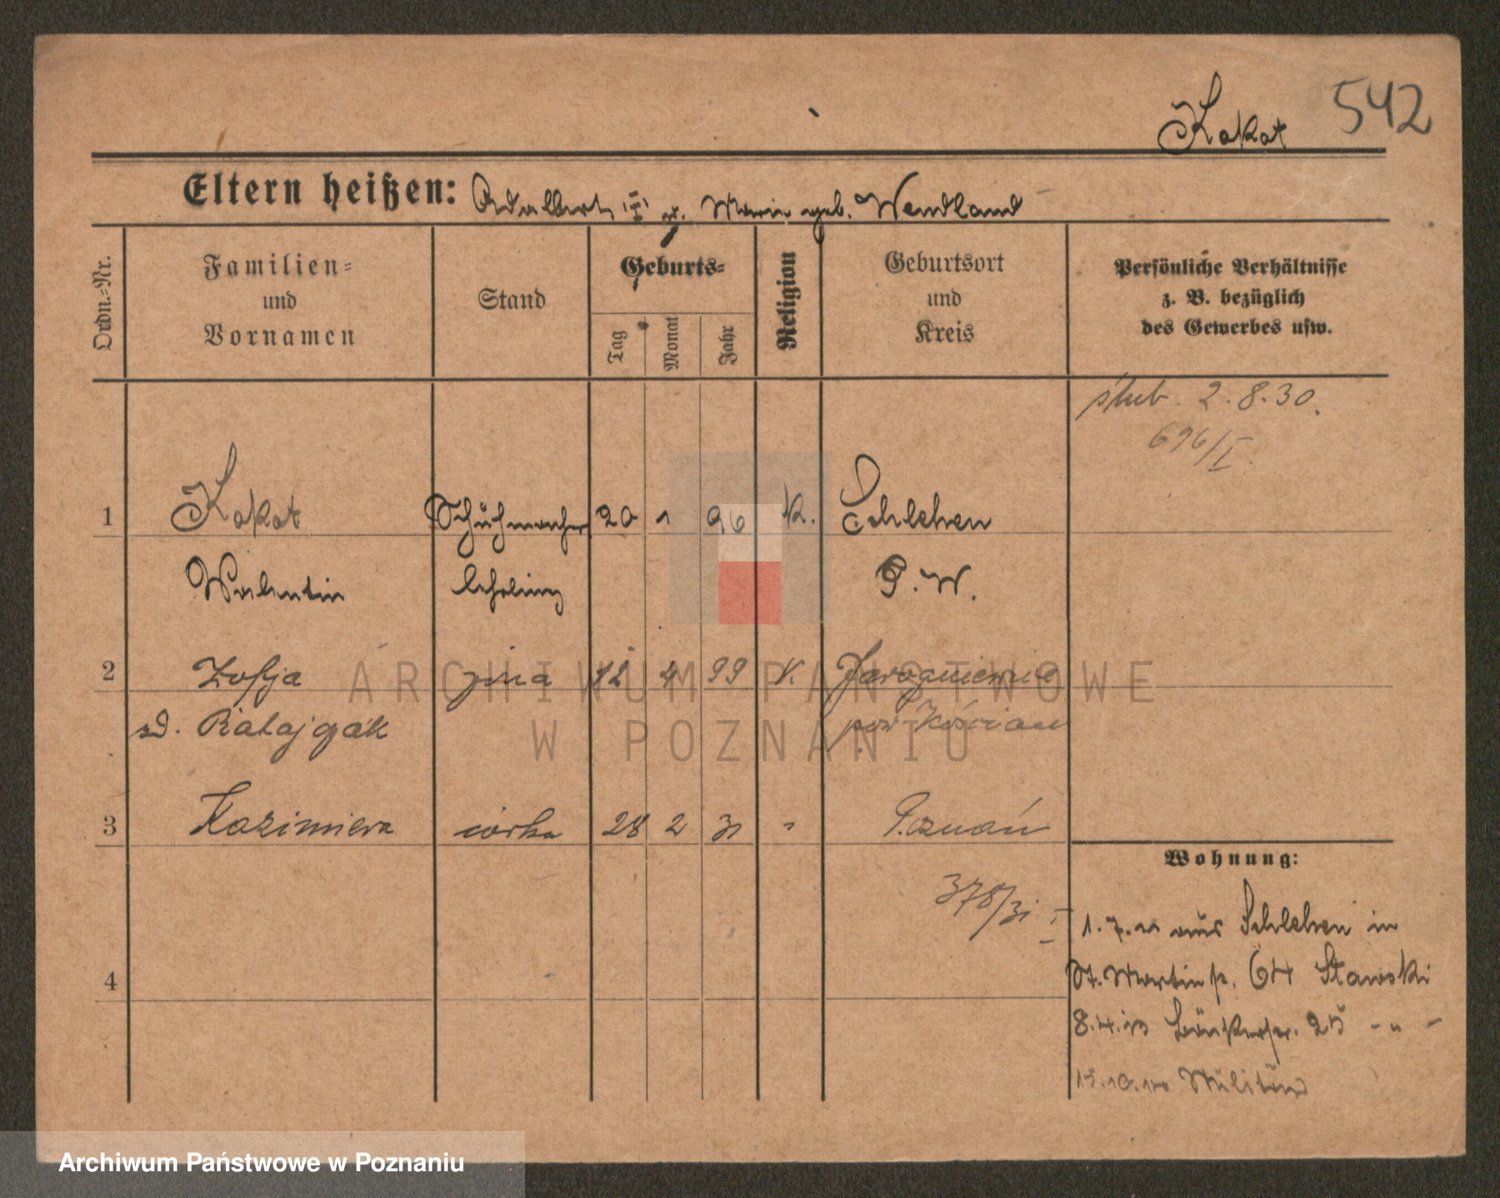 Kakat 542
Eltern heißen: Adalbert u. Marie geb. Wendland
Ordn.-Nr.
Familien-
und
Vornamen
Stand
Geburts-
Tag
Monat
Jahr
Religion
Geburtsort
und
Kreis
Persönliche Verhältnisse
z. B. bezüglich
des Gewerbes usw.
ślub 2.8.30.
696/I.
1 Kakat Schuhmacher 20 1 96 K. Schlehen
Walentin lehrling P. W.
2 Zofja żona 12 4 99 K. Jarogniewice
zd. Ratajczak pow. Kościan
3 Kazimiera córka 28 2 31 " Poznań
378/31 I
4
Wohnung:
1. 7. aus Schlehen in
St. Martinstr. 64 Stawski
8.4. Bäckerstr. 25 - " -
15.10. Militär
ARCHIWUM PAŃSTWOWE
W POZNANIU
Archiwum Państwowe w Poznaniu